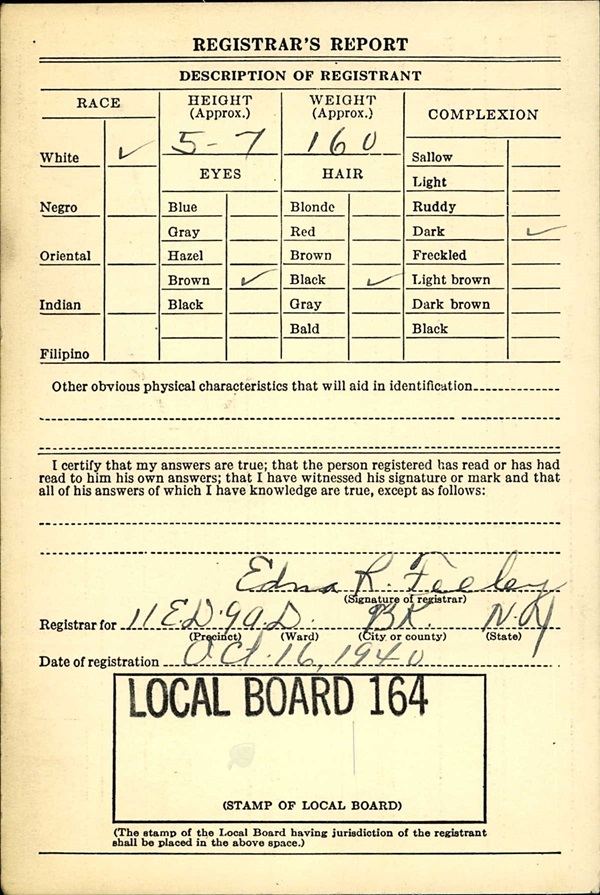 REGISTRAR'S REPORT
DESCRIPTION OF REGISTRANT
RACE
HEIGHT
(Approx.)
WEIGHT
(Approx.)
COMPLEXION
White ✓
5-7
160
Sallow
EYES
HAIR
Light
Negro
Blue
Blonde
Ruddy
Gray
Red
Dark ✓
Oriental
Hazel
Brown
Freckled
Brown ✓
Black ✓
Light brown
Indian
Black
Gray
Dark brown
Bald
Black
Filipino
Other obvious physical characteristics that will aid in identification
I certify that my answers are true; that the person registered has read or has had
read to him his own answers; that I have witnessed his signature or mark and that
all of his answers of which I have knowledge are true, except as follows:
Edna R. Feeley
(Signature of registrar)
Registrar for 11 E.D. 9 A.D. BK. N.Y
(Precinct) (Ward) (City or county) (State)
Date of registration Oct. 16, 1940
LOCAL BOARD 164
(STAMP OF LOCAL BOARD)
(The stamp of the Local Board having jurisdiction of the registrant
shall be placed in the above space.)